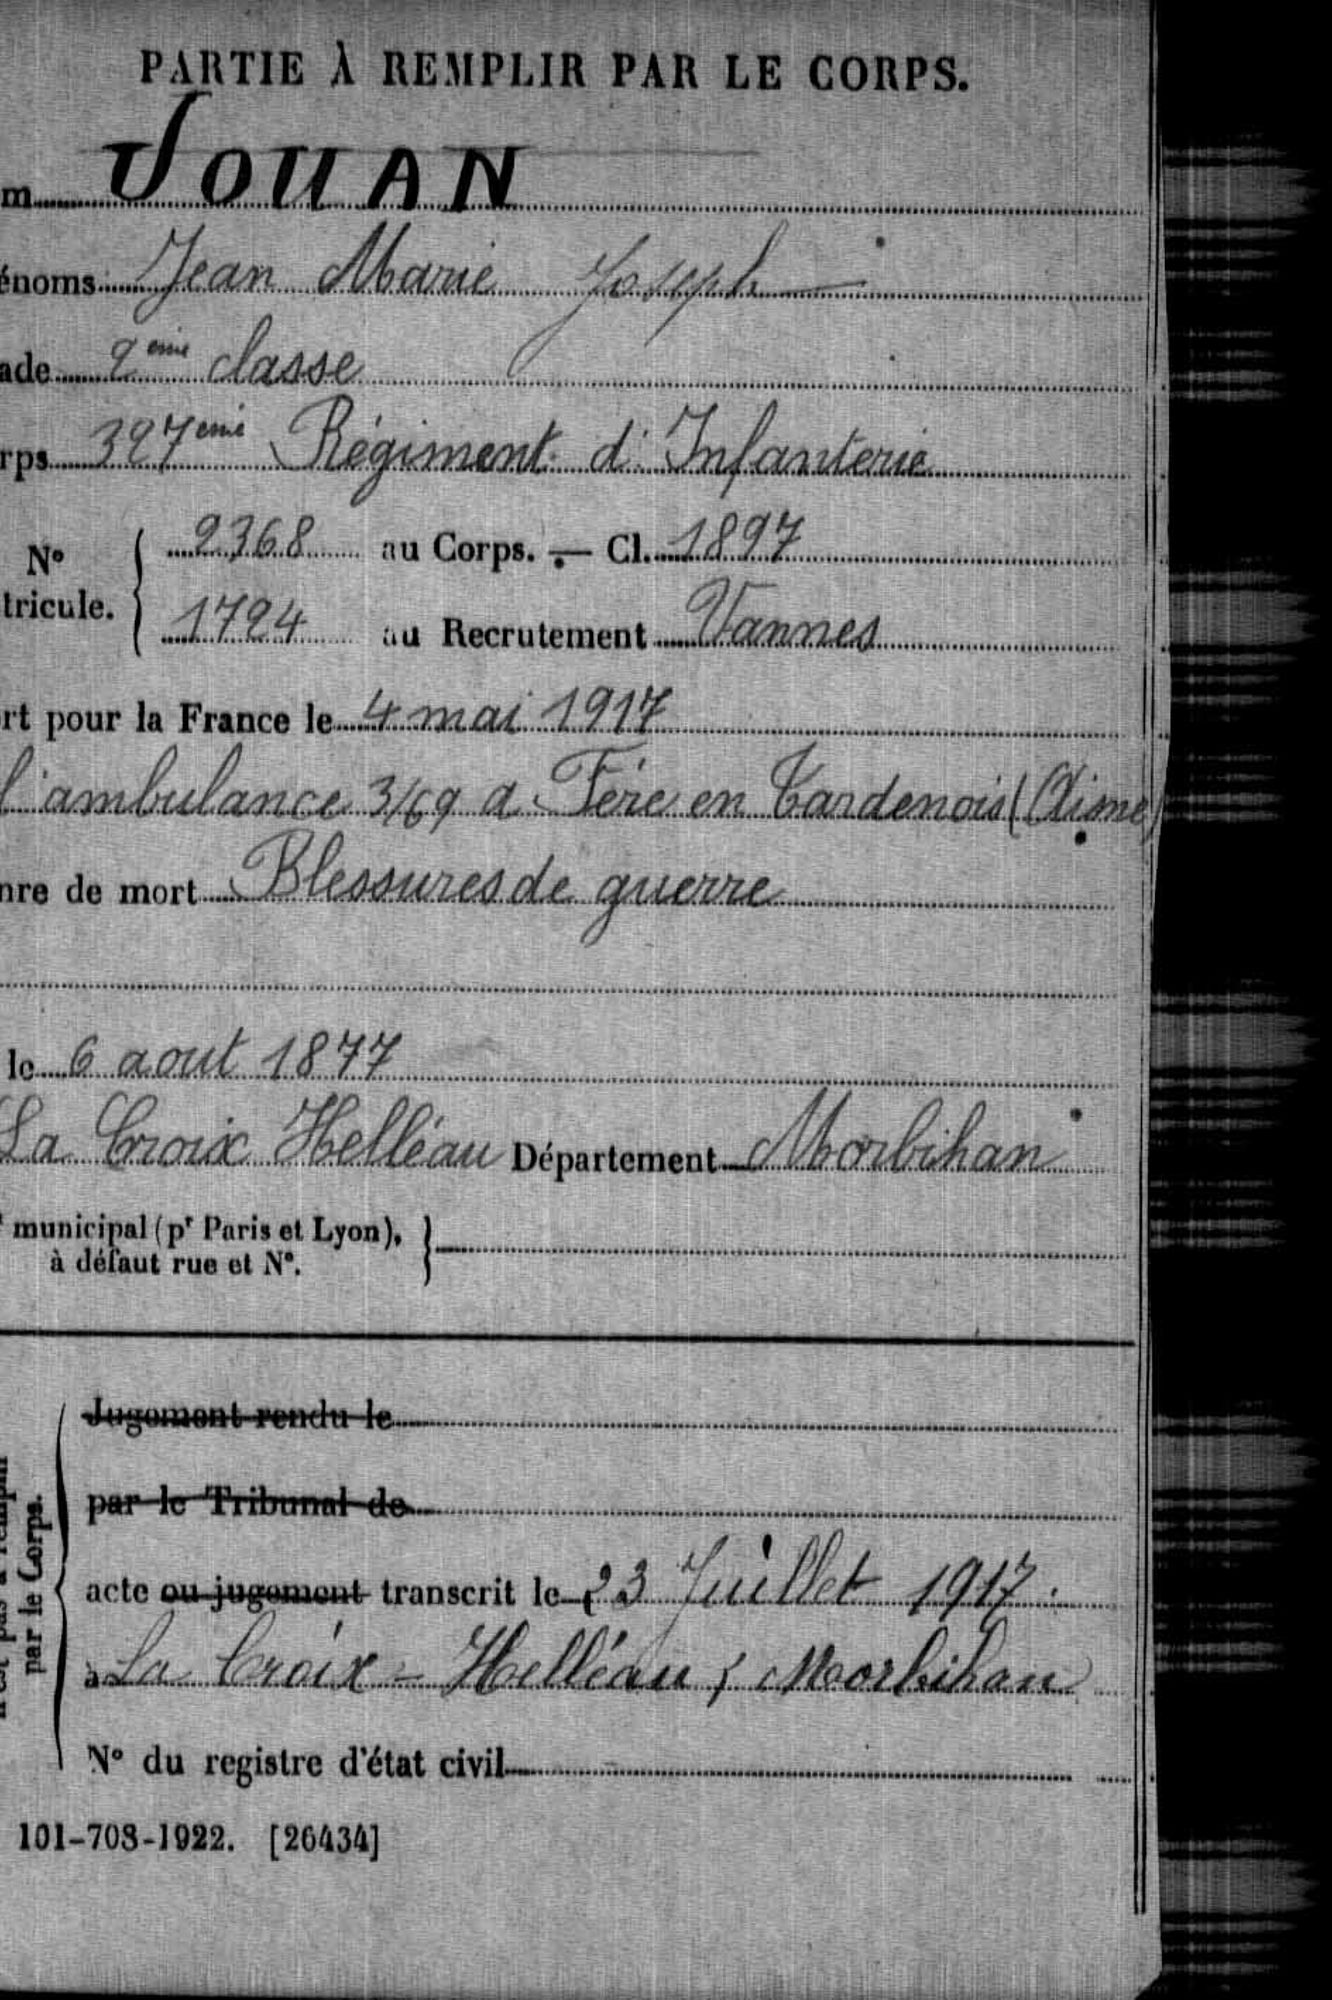 PARTIE À REMPLIR PAR LE CORPS.
m JOUAN
énoms Jean Marie Joseph
ade 2eme classe
rps 327eme Régiment d'Infanterie
No
tricule.
2368 au Corps. — Cl. 1897
1724 au Recrutement Vannes
rt pour la France le 4 mai 1917
l'ambulance 3/69 a Fére en Tardenois (Aisne)
nre de mort Blessures de guerre
le 6 aout 1877
La Croix Helléau Département Morbihan
municipal (pr Paris et Lyon),
à défaut rue et No.
par le Corps.
Jugement rendu le
par le Tribunal de
acte ou jugement transcrit le 23 Juillet 1917.
à La Croix-Helléau, Morbihan
No du registre d'état civil
101-708-1922. [26434]